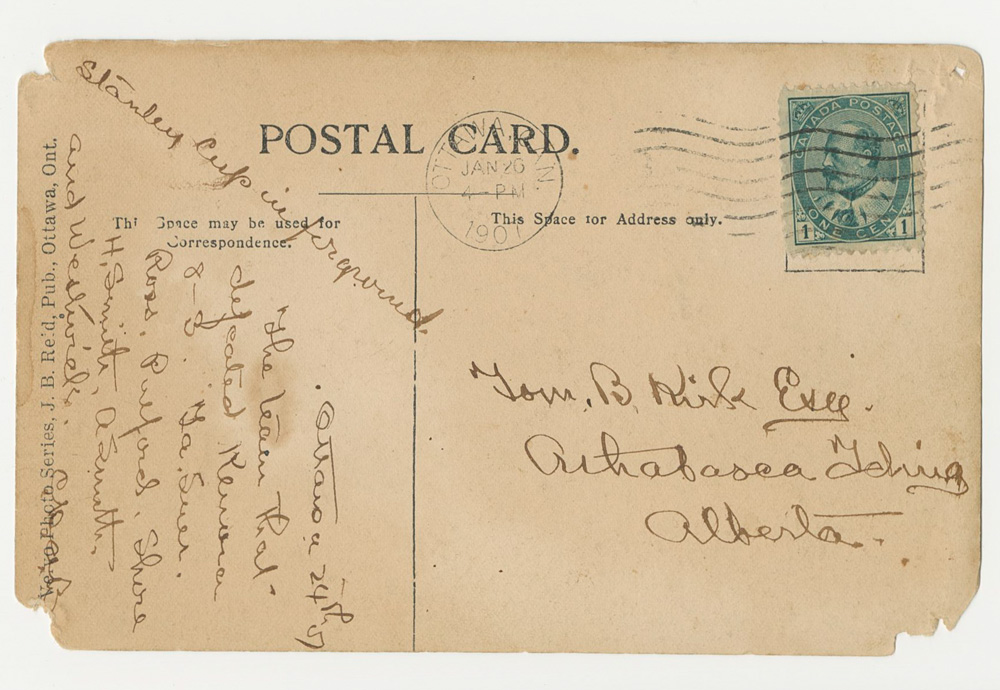 POSTAL CARD.
OTTAWA,
JAN 26
4 - PM
1901
CANADA POSTAGE
1 ONE CENT 1
This Space may be used for
Correspondence.
This Space for Address only.
Stanley Cup in forground.
Ottawa 24th
The team that
defeated Kenora
8-3.
Ross, Pulford, Shore
H. Smith, A Smith
and Westwick.
Tom. B. Kirk Esq.
Athabasca Lding
Alberta.
Photo Series, J. B. Reid, Pub., Ottawa, Ont.